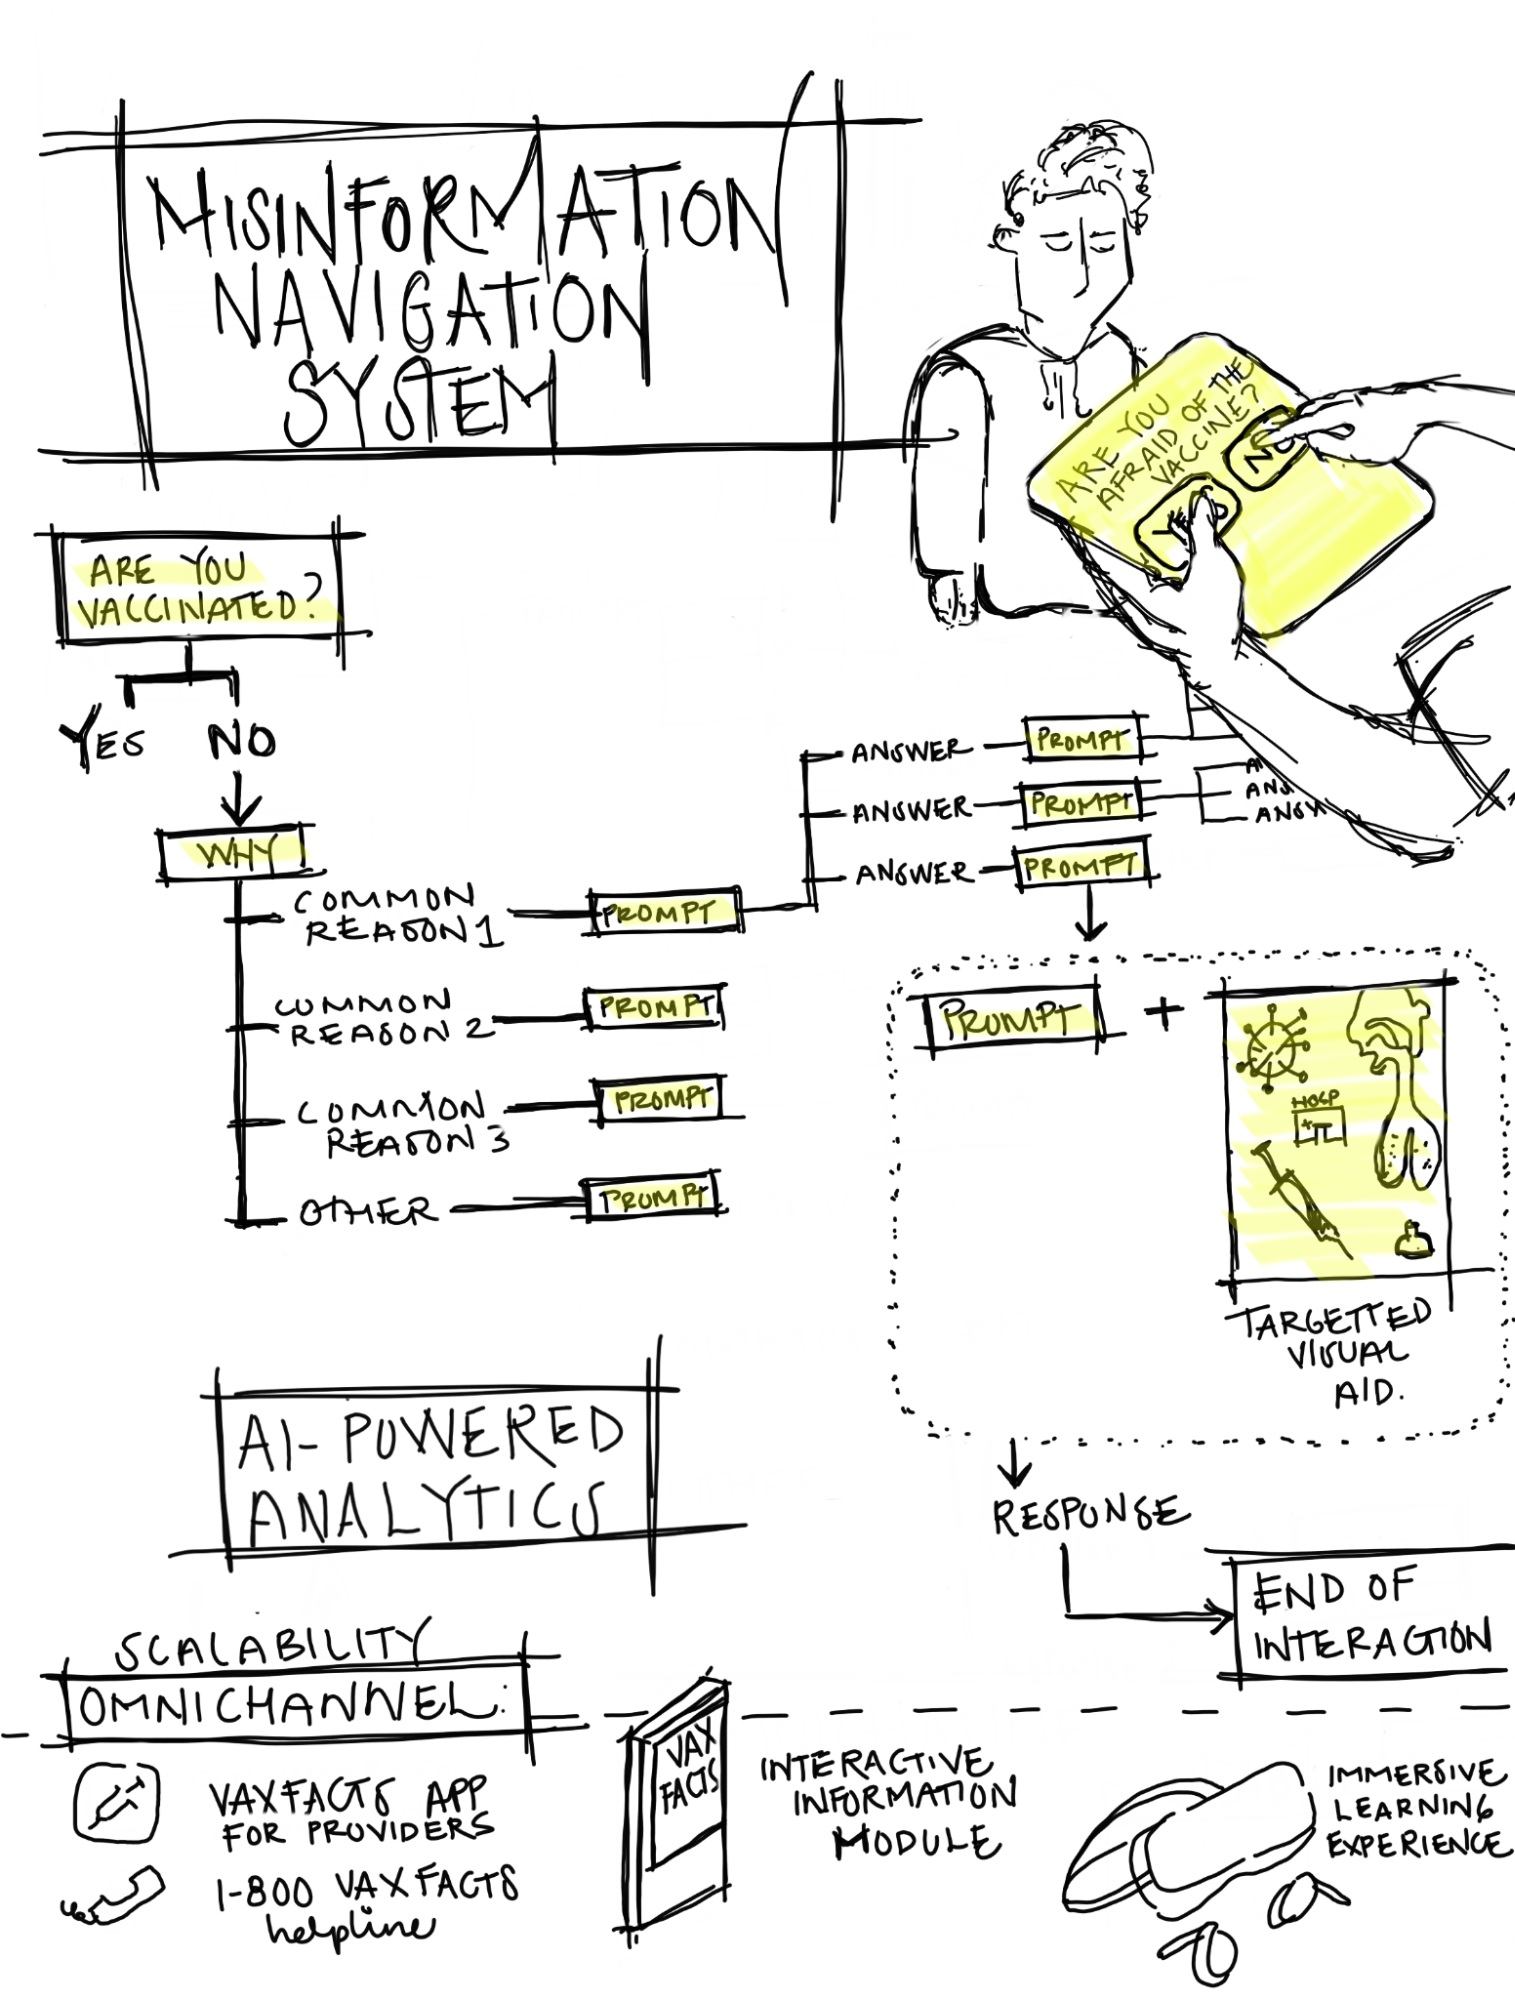 MISINFORMATION
NAVIGATION
SYSTEM
ARE YOU
AFRAID OF THE
VACCINE?
YES
NO
ARE YOU
VACCINATED?
YES
NO
WHY
COMMON
REASON 1
PROMPT
COMMON
REASON 2
PROMPT
COMMON
REASON 3
PROMPT
OTHER
PROMPT
ANSWER
PROMPT
ANSWER
PROMPT
ANSWER
PROMPT
PROMPT
+
HOSP
TARGETTED
VISUAL
AID.
RESPONSE
END OF
INTERACTION
AI-POWERED
ANALYTICS
SCALABILITY
OMNICHANNEL:
VAXFACTS APP
FOR PROVIDERS
1-800 VAXFACTS
helpline
VAX
FACTS
INTERACTIVE
INFORMATION
MODULE
IMMERSIVE
LEARNING
EXPERIENCE